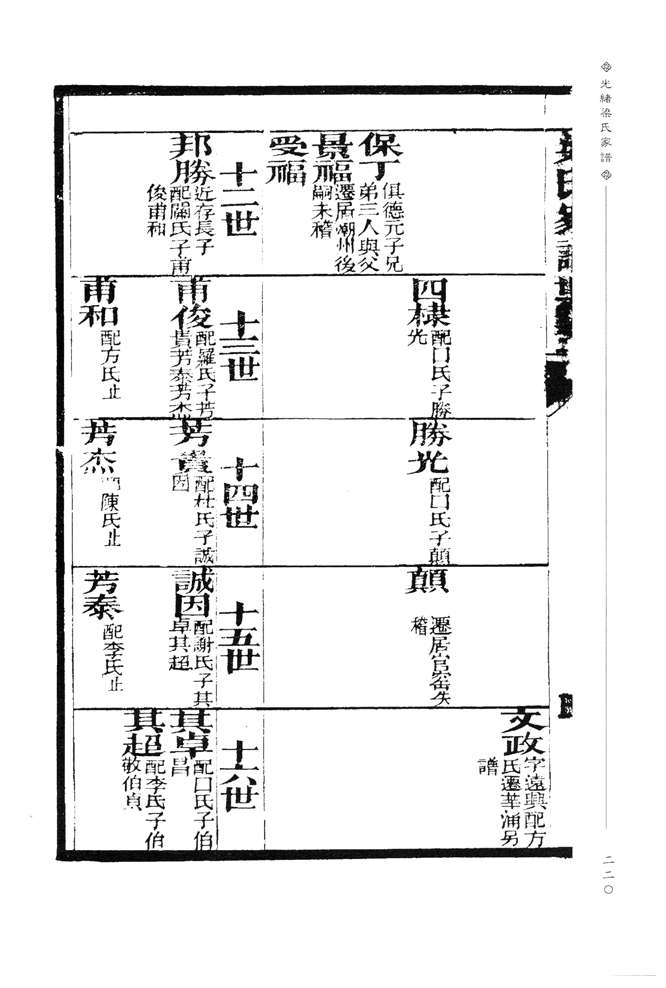 光緒梁氏家譜
二二〇
保丁
俱德元子兄
弟三人與父
景福
遷居潮州後
嗣未稽
受福
四棣
配口氏子勝
光
勝光
配口氏子顛
顛
遷居官窑失
稽
文政
字遠興配方
氏遷華涌另
譜
十二世
十三世
十四世
十五世
十六世
邦勝
近存長子
配關氏子甫
俊甫和
甫俊
配羅氏子芳
貴芳泰芳杰
芳貴
配杜氏子誠
因
誠因
配謝氏子其
卓其超
其卓
配口氏子伯
昌
其超
配李氏子伯
敬伯貞
甫和
配方氏止
芳杰
陳氏止
芳泰
配李氏止